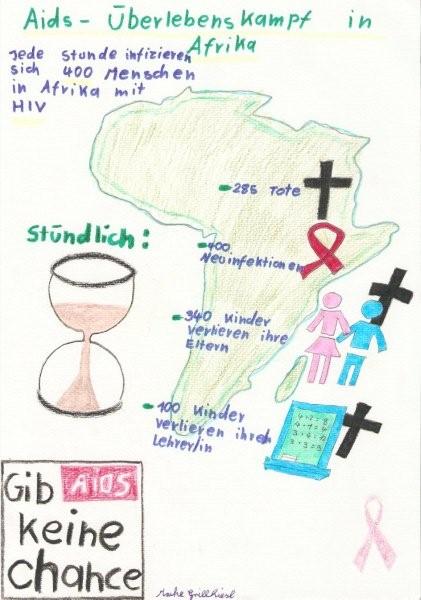 Aids - Überlebenskampf in
Afrika
Jede Stunde infizieren
sich 400 Menschen
in Afrika mit
HIV
285 Tote
Stündlich:
400
Neuinfektionen
340 Kinder
verlieren ihre
Eltern
100 Kinder
verlieren ihren
Lehrer/in
Gib AIDS
keine
Chance